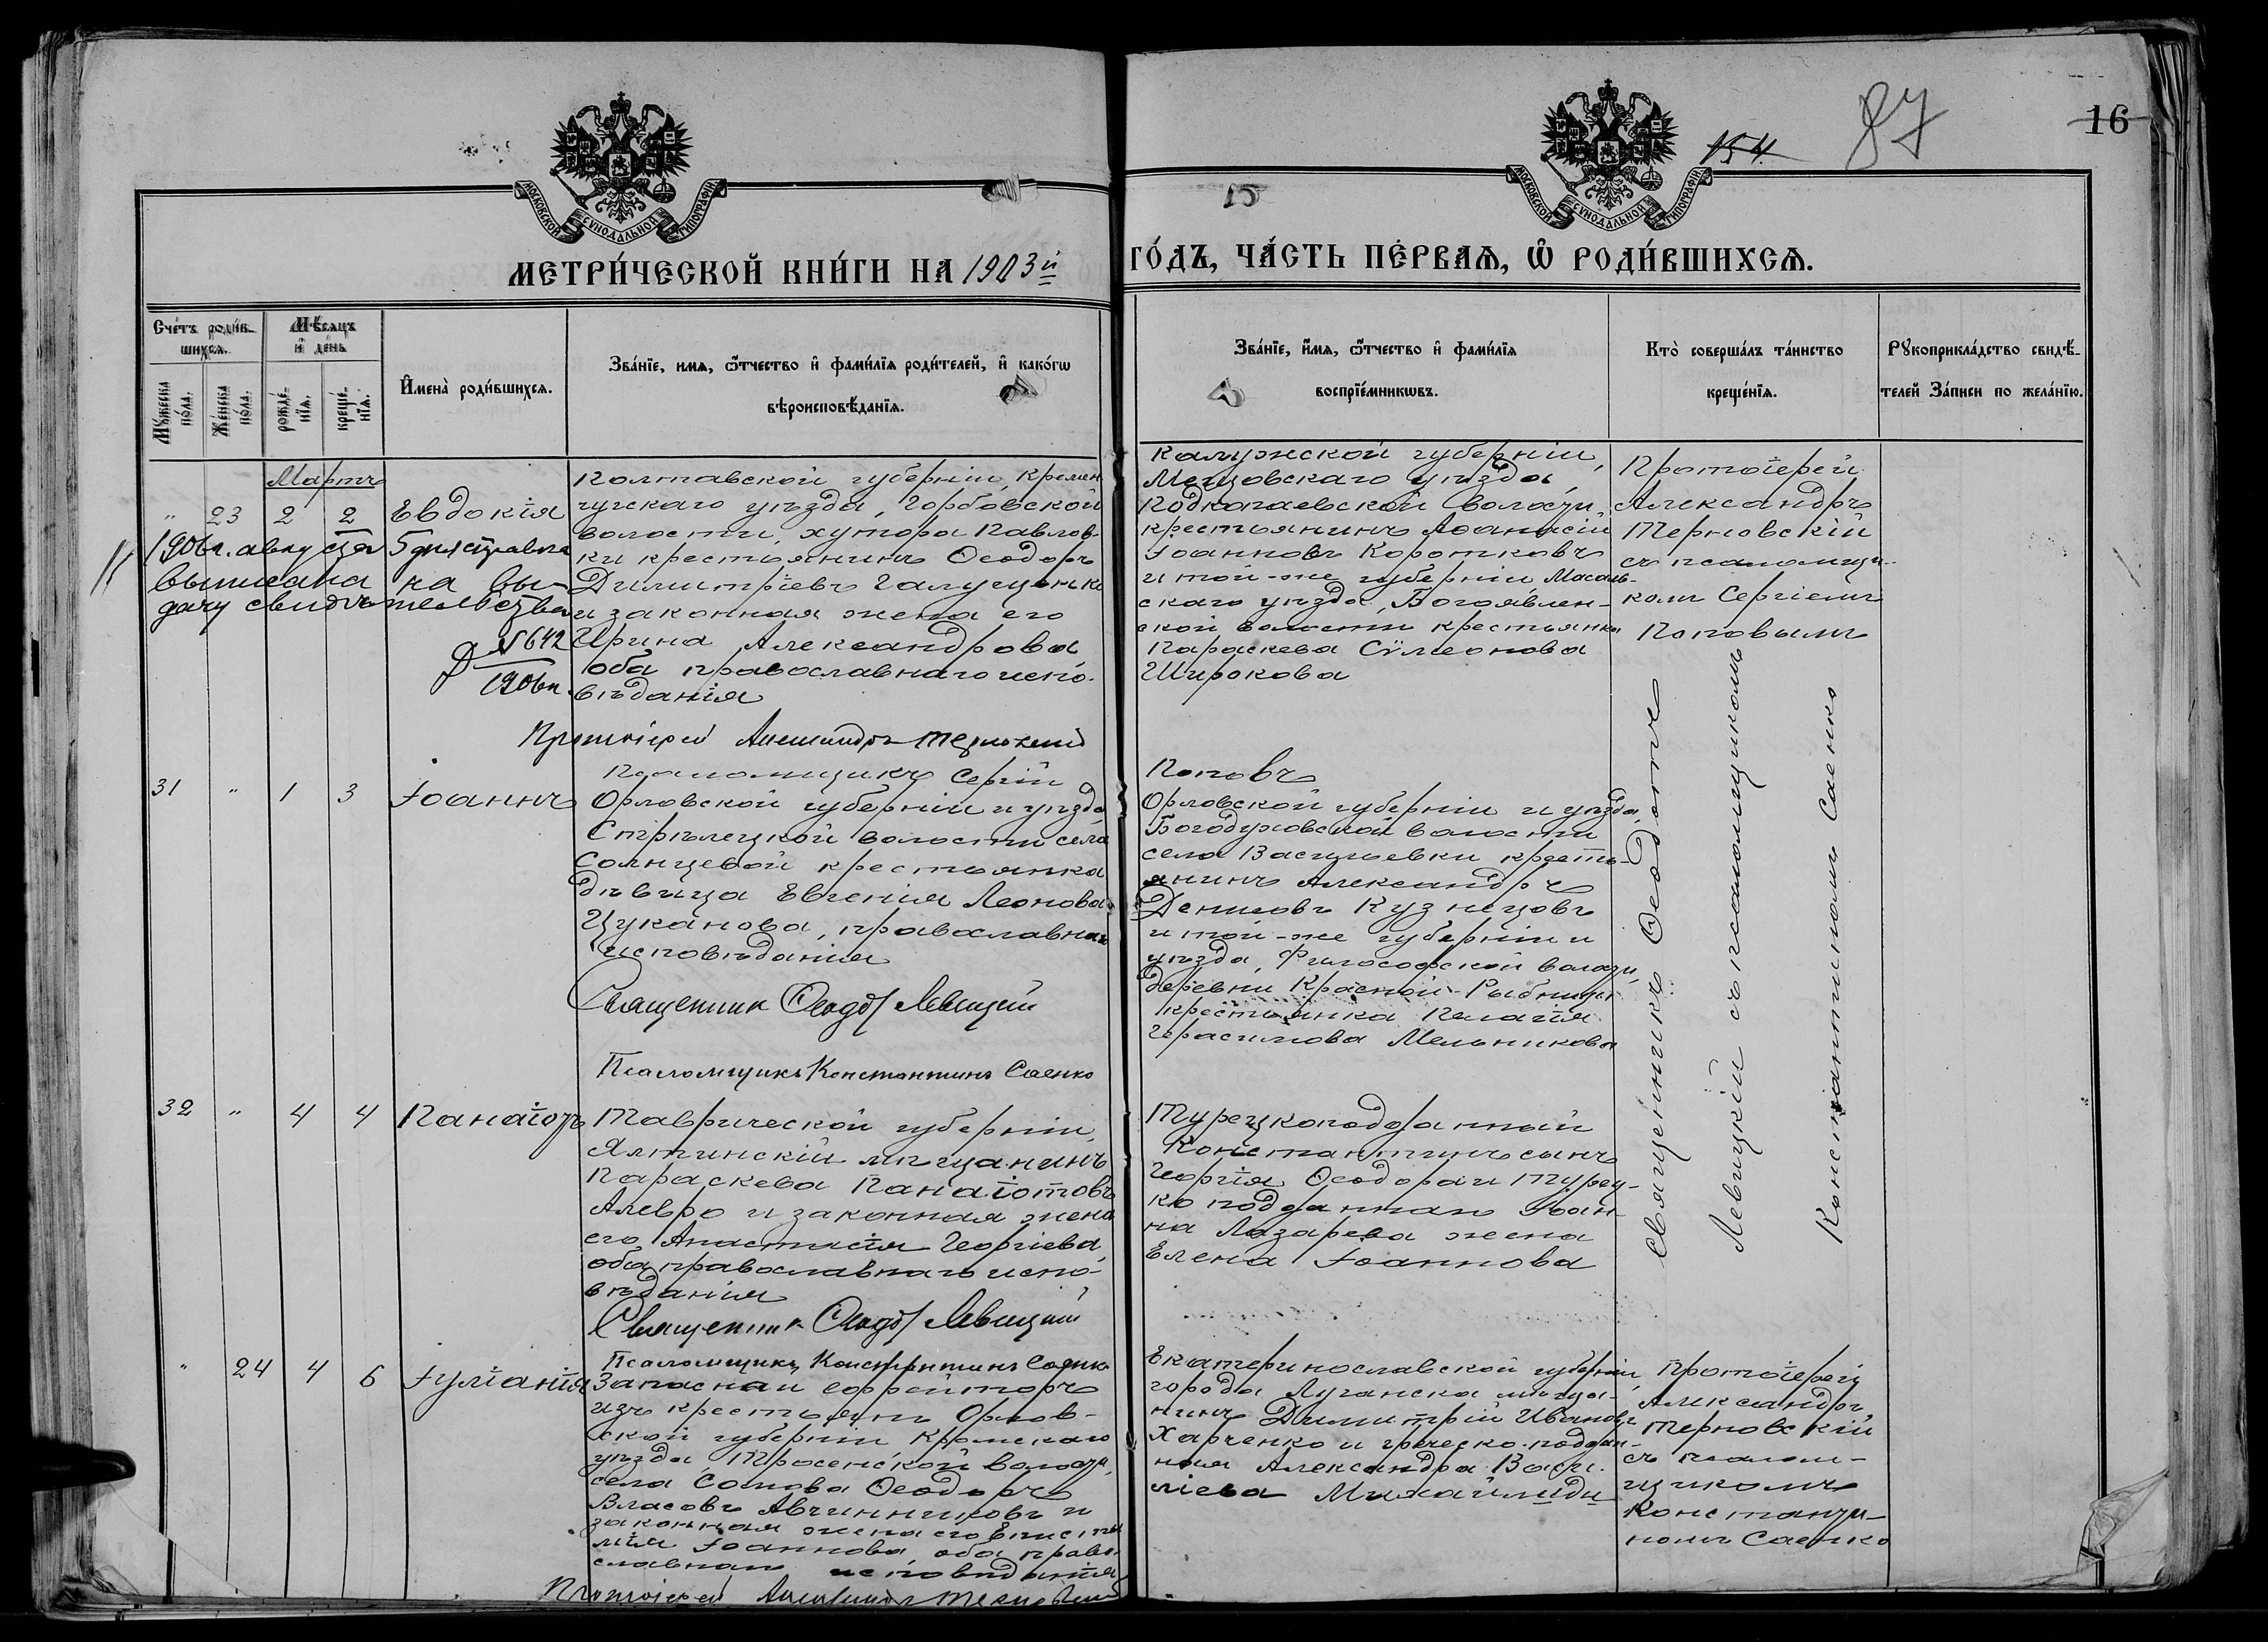 87
154.
16
15
МОСКОВСКОЙ СѴНОДАЛЬНОЙ ТИПОГРАФІИ
МОСКОВСКОЙ СѴНОДАЛЬНОЙ ТИПОГРАФІИ
МЕТРИ́ЧЕСКОЙ КНИ́ГИ НА 1903й
ГО́ДЪ, ЧА́СТЬ ПЕ́РВАѦ, Ѽ РОДИ́ВШИХСѦ.
Счётъ роди́в-
шихсѧ.
Мѣ́сѧцъ
и҆ де́нь
Мꙋ́жеска
по́ла.
Же́нска
по́ла.
рожде́-
нїѧ.
креще́-
нїѧ.
И҆мена̀ роди́вшихсѧ.
Зва́нїе, имѧ, ѿтчество и҆ фами́лїѧ роди́телей, и҆ како́гѡ
вѣроисповѣ́данїѧ.
Зва́нїе, и҆́мѧ, ѿтчество и҆ фами́лїѧ
воспрїе́мникѡвъ.
Кто̀ соверша́лъ та́инство
креще́нїѧ.
Рꙋкоприкла́дство свидѣ́-
телей За́писи по жела́нїю.
Мартъ
" 23 2 2 Евдокія
1906 г. августа 5 дня справка
выписана на вы-
дачу свидѣтельства
№ 642
1906 г.
Полтавской губерніи, Кремен
чугскаго уѣзда, Горбовской
волости, хутора Павлов-
ки крестьянинъ Ѳеодоръ
Димитріевъ Галущенко
и законная жена его
Ирина Александрова,
оба православнаго испо-
вѣданія
Протоіерей Александръ Терновскій
Псаломщикъ Сергій
Калужской губерніи,
Мещовскаго уѣзда,
Подкопаевской волости,
крестьянинъ Аѳанасій
Іоанновъ Коротковъ
и той-же губерніи Масаль-
скаго уѣзда, Богоявлен-
ской волости крестьянка
Параскева Сѵмеонова
Широкова
Поповъ
Протоіерей
Александръ
Терновскій
съ псаломщи-
комъ Сергіемъ
Поповымъ
31 " 1 3 Іоаннъ
Орловской губерніи и уѣзда
Стрѣлецкой волости села
Солнцевой крестьянка
дѣвица Евгенія Леонова
Цуканова, православнаго
исповѣданія
Священникъ Ѳеодотъ Левицкій
Псаломщикъ Константинъ Саенко
Орловской губерніи и уѣзда,
Богодуховской волости
села Васильевки кресть-
янинъ Александръ
Денисовъ Кузнецовъ
и той-же губерніи и
уѣзда, Философской волости,
деревни Красной-Рыбницы
крестьянка Пелагія
Герасимова Мельникова
Священникъ Ѳеодотъ
Левицкій съ псаломщикомъ
Константиномъ Саенко
32 " 4 4 Панаіотъ
Таврической губерніи,
Ялтинскій мѣщанинъ
Параскева Панаіотовъ
Алевро и законная жена
его Анастасія Георгіева,
оба православнаго испо-
вѣданія
Священникъ Ѳеодотъ Левицкій
Псаломщикъ Константинъ Саенко
Турецкоподданный
Константинъ сынъ
Георгія Ѳеодора и турец-
ко подданнаго Іоан-
на Лазарева жена
Елена Іоаннова
" 24 4 6 Іуліанія
Запасный ефрейторъ
изъ крестьянъ Орлов-
ской губерніи Кромскаго
уѣзда, волости,
села Сомова Ѳеодоръ
Власовъ Авчинниковъ и
законная жена его Еписти
мія Іоаннова, оба право-
славнаго исповѣданія
Протоіерей Александръ Терновскій
Екатеринославской губерніи,
города Луганска мѣща-
нинъ Димитрій Ивановъ
Харченко и греческо-поддан-
ная Александра Васи-
ліева Михайлиди
Протоіерей
Александръ
Терновскій
съ псалом-
щикомъ
Константи-
номъ Саенко